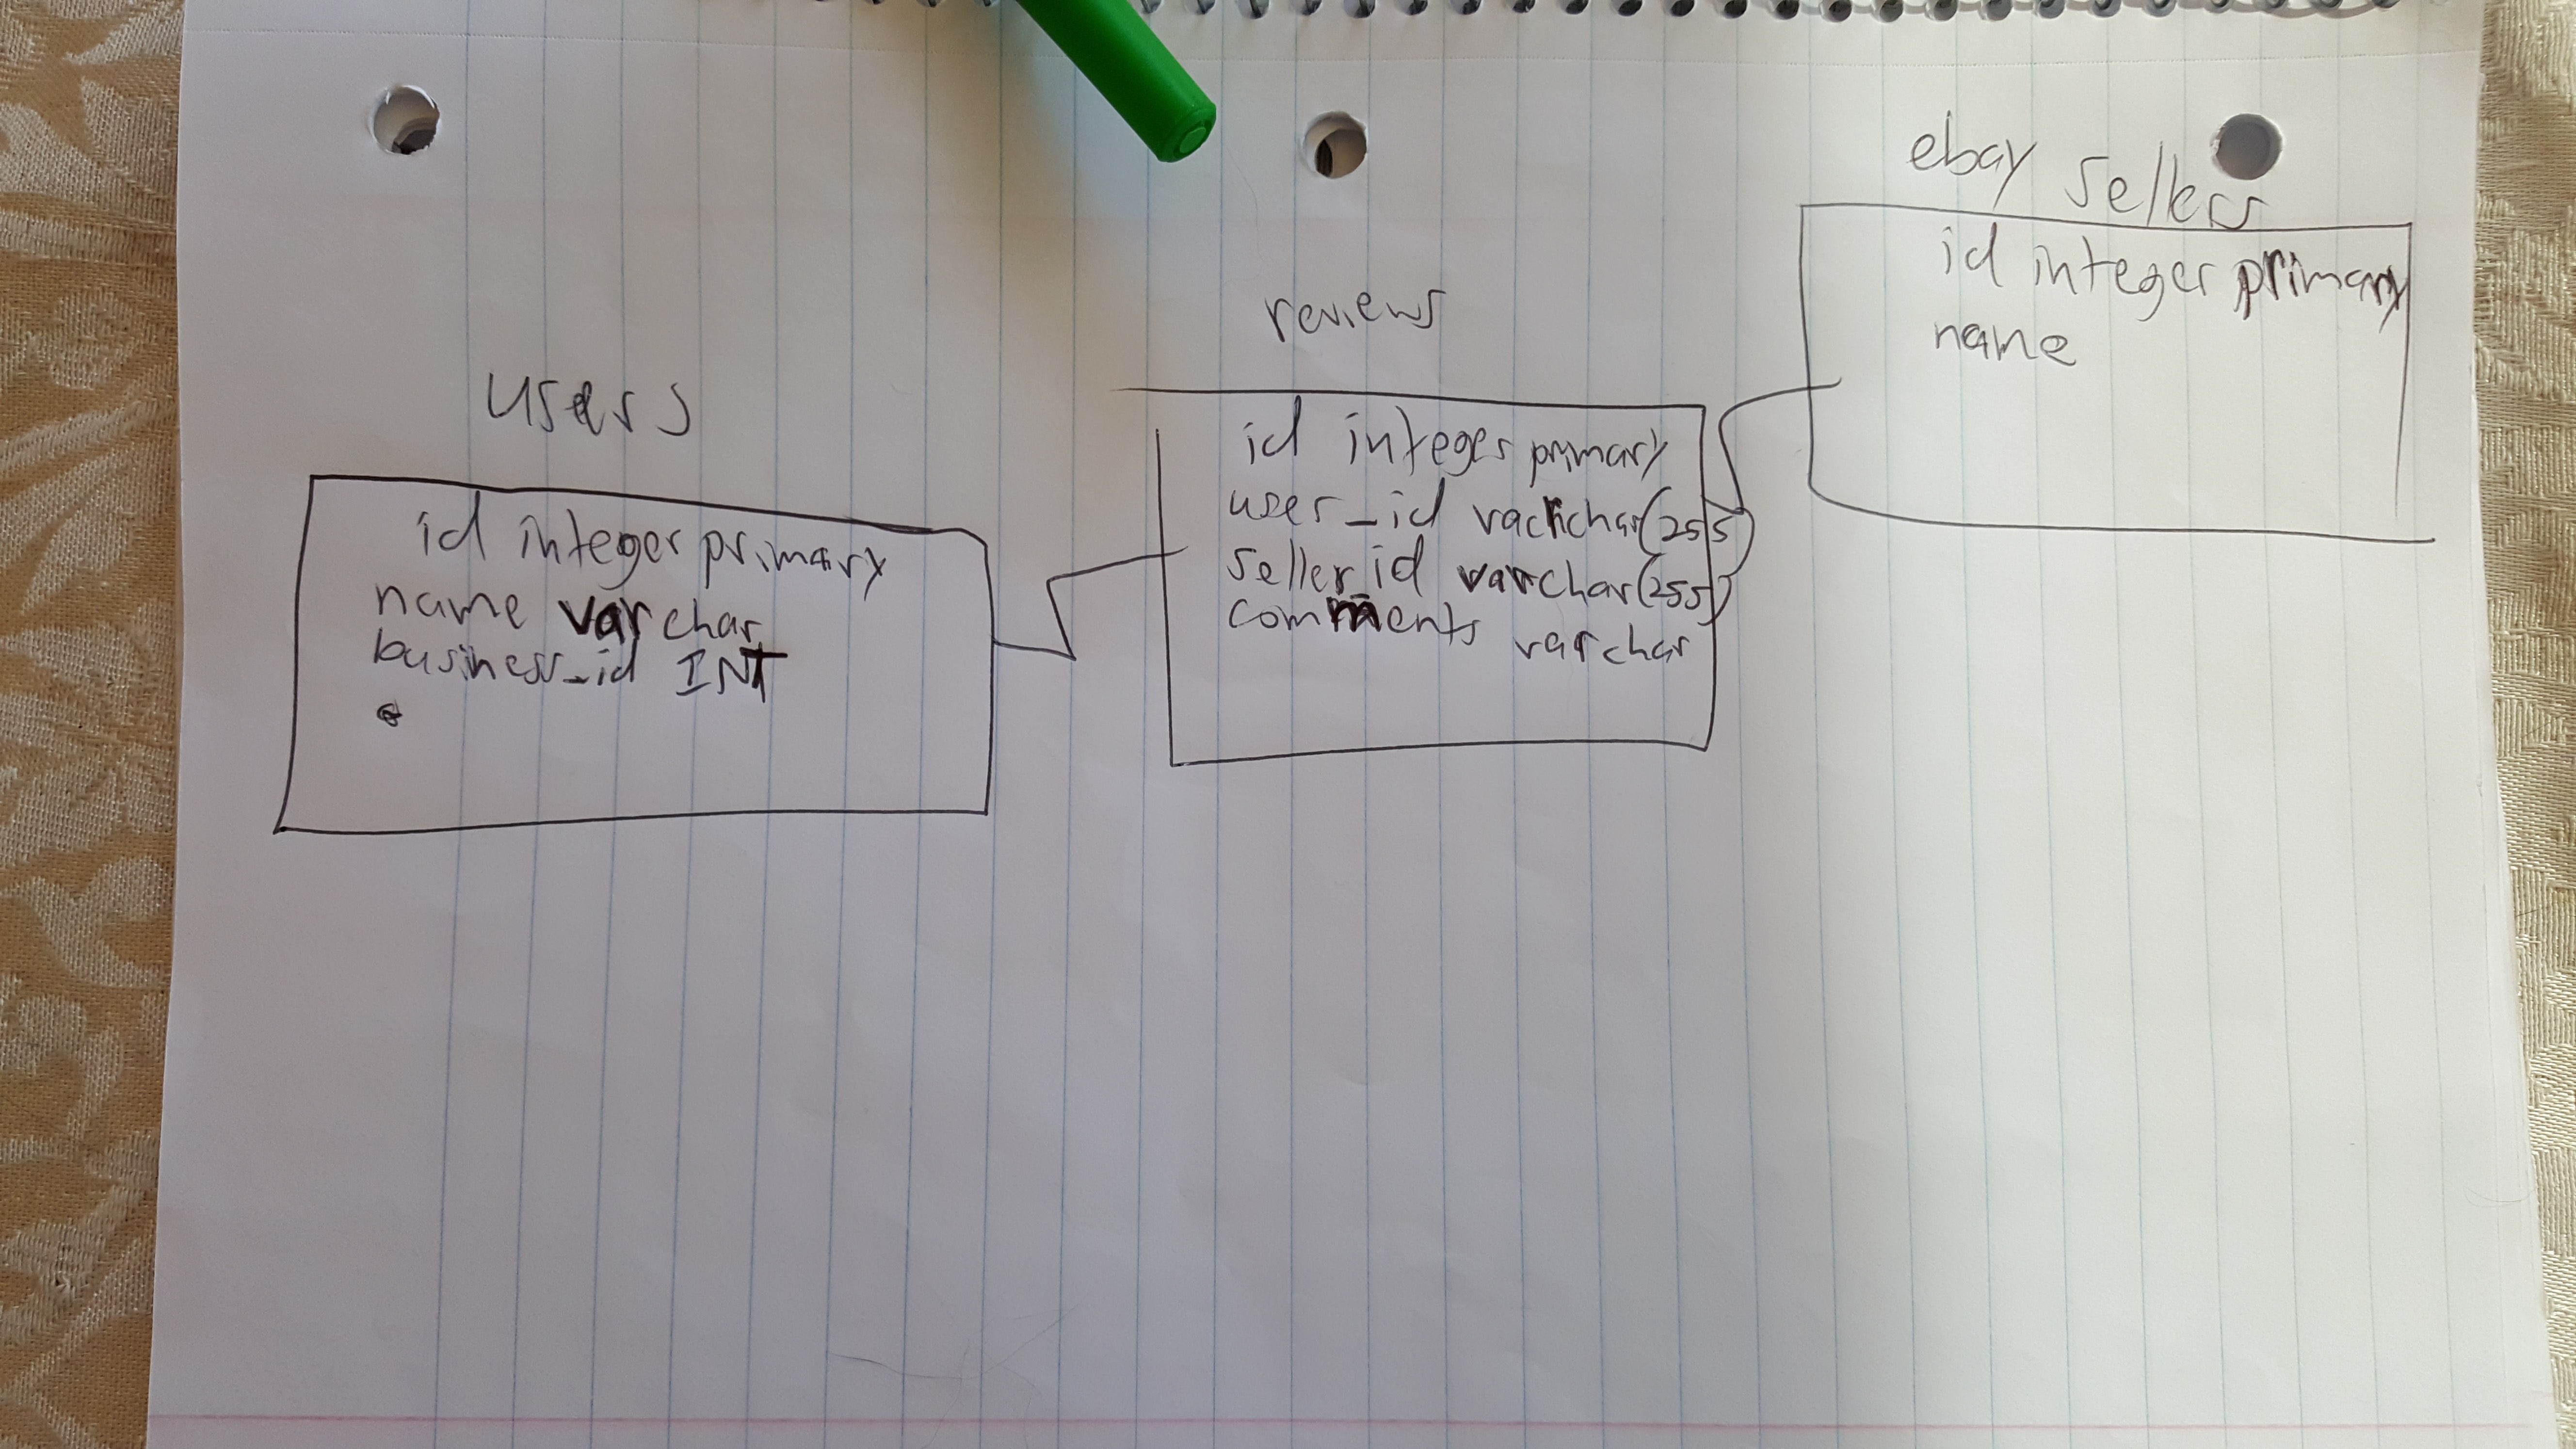 users
id integer primary
name varchar
business_id INT
reviews
id integer primary
user_id varchar(255)
seller id varchar(255)
comments varchar
ebay sellers
id integer primary
name